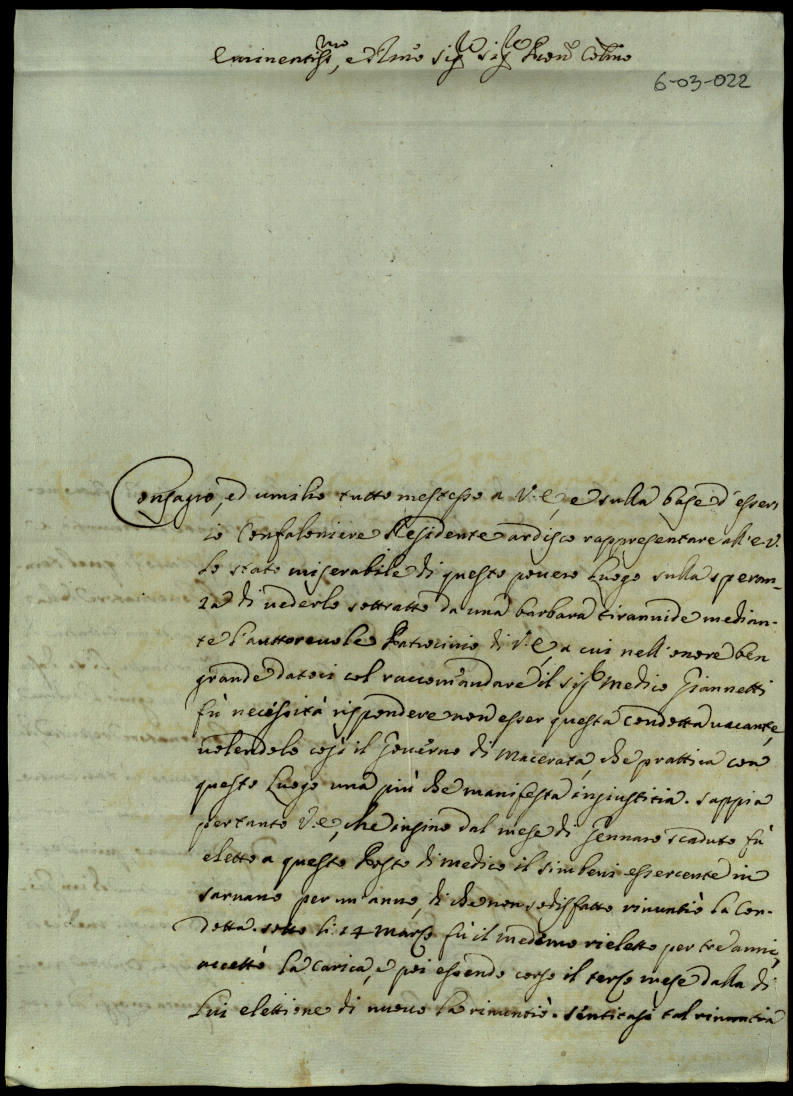 Eminentissmo, e Rmo Sigre Sigre Pron Colmo
6-03-022
Consagro, ed umilio tutto mestesso a V.E., e sulla base d'esser
io Confaloniere Residente ardisco rappresentare all'E.V.
lo stato miserabile di questo povero Luogo sulla speran-
za di vederlo sottratto da una barbara tirannide median-
te l'auttorevole Patrocinio di V.E., a cui nell'onore ben
grande datoci col raccomandare il sigre Medico Giannetti
fù necessità rispondere non esser questa Condotta vacante,
volendolo così il Governo di Macerata, che prattica con
questo Luogo una più che manifesta ingiustitia. Sappia
pertanto V.E., che insino dal mese di Gennaro scaduto fù
eletto a questo Posto di medico il Simbeni essercente in
Sarnano per un'anno, di che non sodisfatto rinuntiò la Con-
dotta. Sotto li 14 Marzo fù il medemo rieletto per tre anni,
accettò la carica, e poi essendo corso il terzo mese dalla di
Lui elettione di nuovo la rinuntiò. Sentitasi tal rinuntia